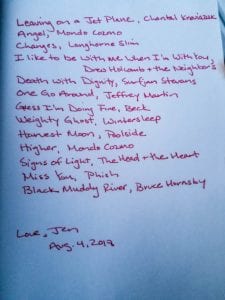 Leaving on a Jet Plane, Chantal Kreviazuk
Angel, Mondo Cozmo
Changes, Langhorne Slim
I like to be with me when I'm with You,
Drew Holcomb + the Neighbors
Death with Dignity, Surfjan Stevens
One Go Around, Jeffrey Martin
Guess I'm Doing Fine, Beck
Weighty Ghost, Wintersleep
Harvest Moon, Poolside
Higher, Mondo Cozmo
Signs of Light, The Head + the Heart
Miss You, Phish
Black Muddy River, Bruce Hornsby
Love, Jen
Aug. 4, 2018